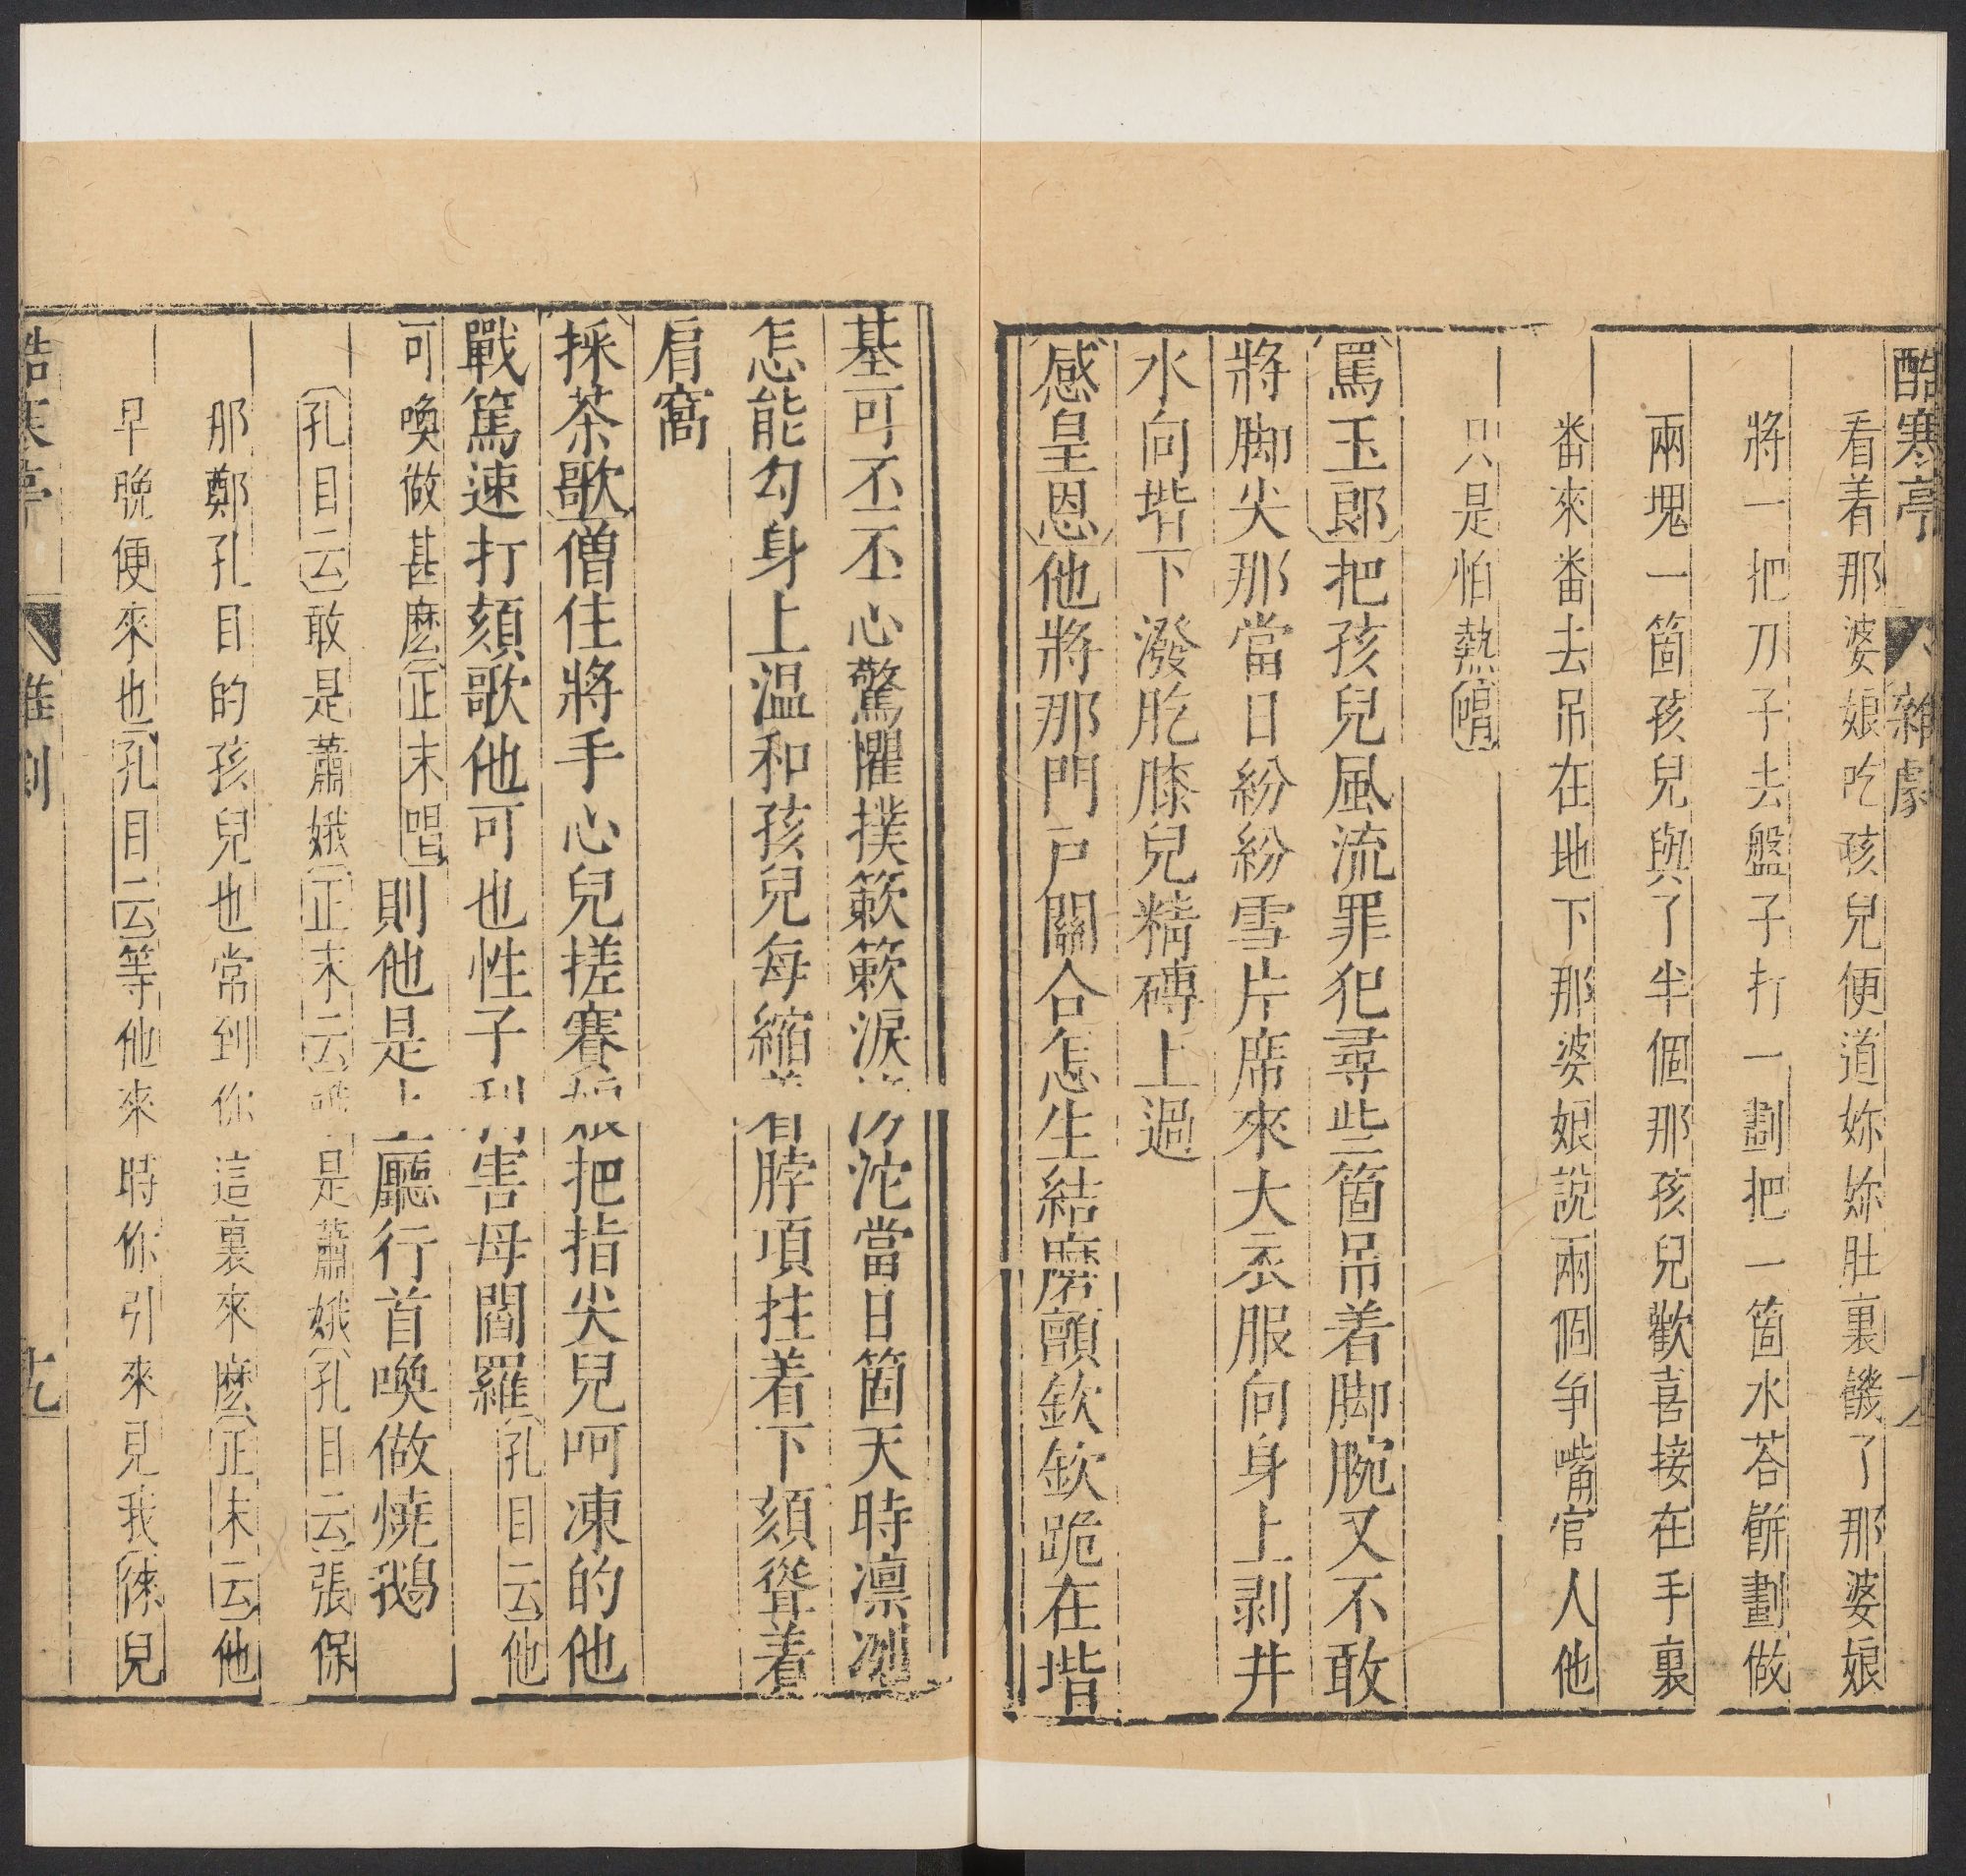 酷寒亭 雜劇
看着那婆娘吃孩兒便道妳妳肚裏饑了那婆娘
將一把刀子去盤子打一劃把一箇水荅餅劃做
兩塊一箇孩兒與了半個那孩兒歡喜接在手裏
番來番去吊在地下那婆娘說兩個爭嘴官人他
只是怕熱唱
罵玉郎把孩兒風流罪犯尋些箇吊着脚腕又不敢
將脚尖那當日紛紛雪片席來大衣服向身上剥井
水向堦下潑肐膝兒精磚上過
感皇恩他將那門戸關合怎生結磨顫欽欽跪在堦
基可丕丕心驚懼撲簌簌淚滂沱當日箇天時凛冽
怎能勾身上温和孩兒每縮着脖項拄着下頦聳着
肩窩
採茶歌僧住將手心兒搓賽娘把指尖兒呵凍的他
戰篤速打頦歌他可也性子利害母閻羅孔目云他
可喚做甚麽正末唱則他是上廳行首喚做燒鵝
孔目云敢是蕭娥正末云是蕭娥孔目云張保
那鄭孔目的孩兒也常到你這裏來麽正末云他
早晚便來也孔目云等他來時你引來見我倈兒
酷寒亭 雜劇 十九